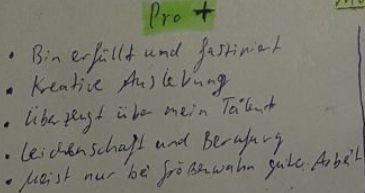 Pro +
• Bin erfüllt und fasziniert
• Kreative Auslebung
• Überzeugt über mein Talent
• Leichenschaft und Berufung
• Meist nur bei Größenwahn gute Arbeit